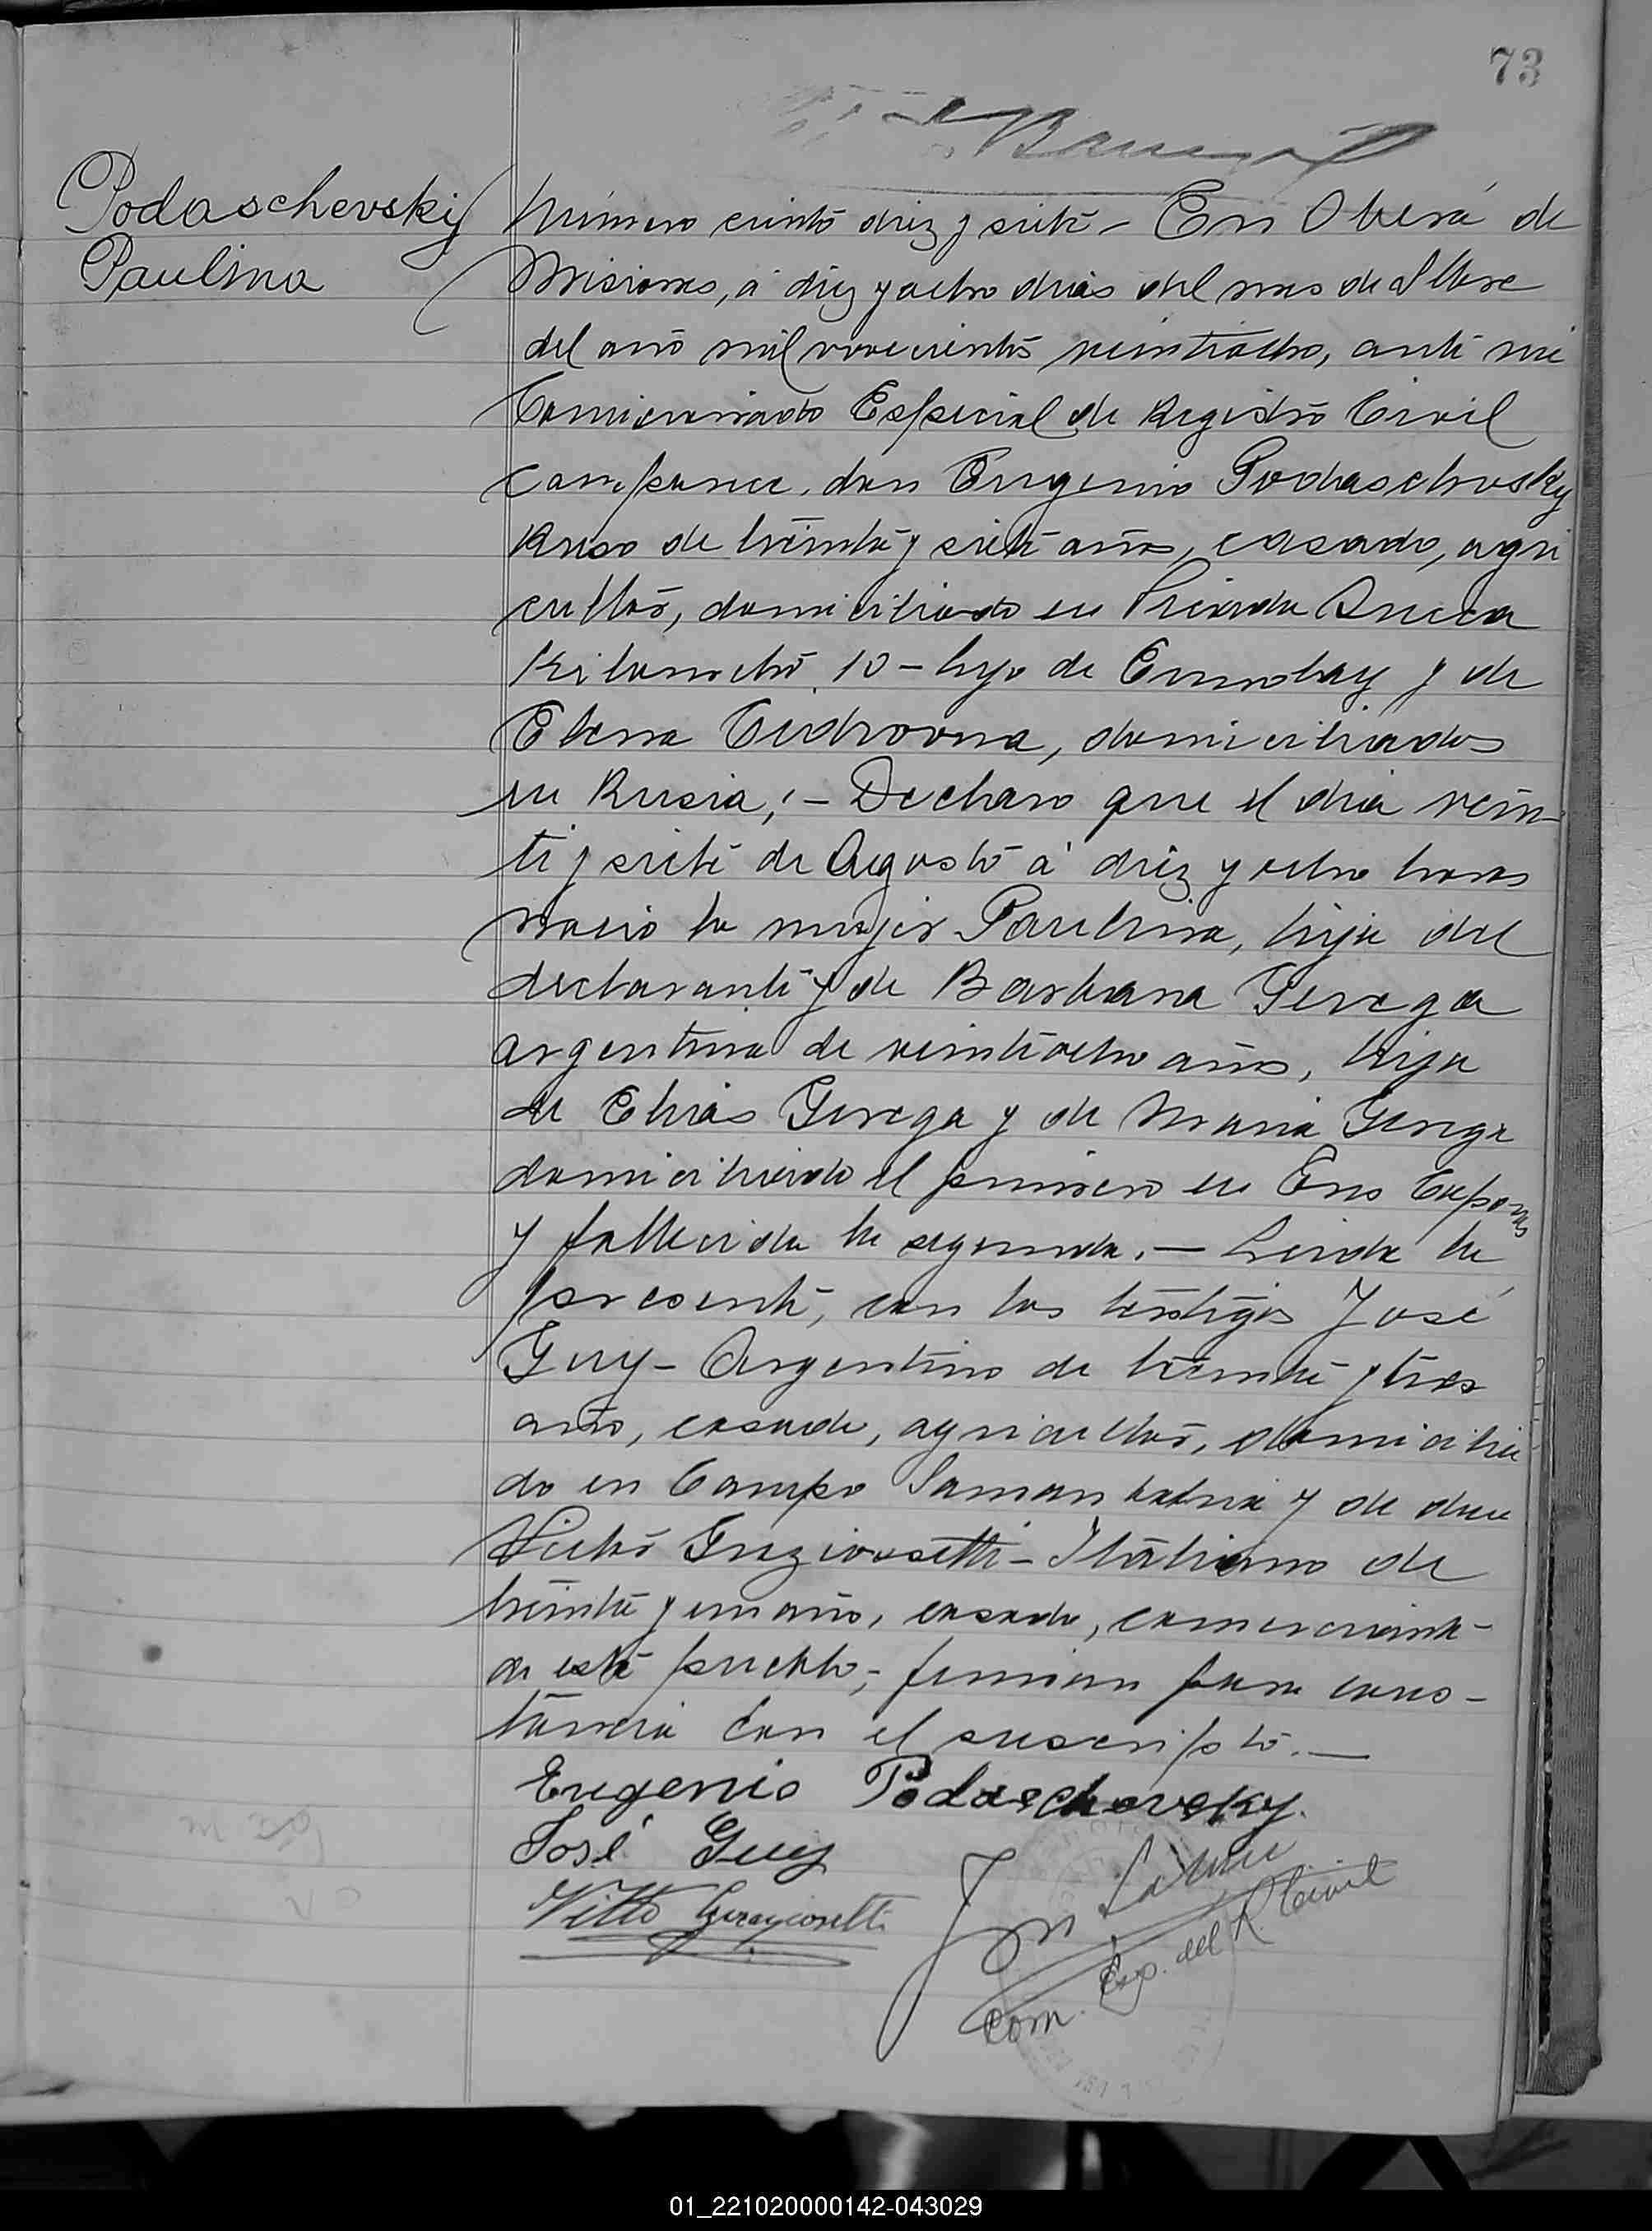 73
Podaschevsky
Paulina
Número ciento diez y siete – En Oberá de
Misiones, á diez y ocho dias del mes de
del año mil novecientos veintiocho, ante mi
Comisionado Especial de Registro Civil
comparece, don Eugenio Podaschevsky
Ruso de treinta y siete años, casado, agri
cultor, domiciliado en Picada Sueca
Kilometro 10 – hijo de y de
Elena domiciliados
en Rusia; – Declaro que el dia vein-
ti y siete de Agosto á diez y ocho horas
nacio la mujer Paulina, hija del
declarante y de Barbara Gerega
argentina de veintiocho años, hija
de Elias Gerega y de Maria Gerega
domiciliado el primero en
y fallecida la segunda. – Leida la
presente, con los testigos José
Guy – Argentino de treinta y tres
años, casado, agricultor, domicilia
do en Campo y de don
Victor – Italiano de
treinta y un años, casado, comerciante
de este pueblo; firman para cons-
tancia con el suscripto. –
Eugenio Podaschovsky.
José Guy
Vitto
Com. Esp. del R. Civil
01_221020000142-043029